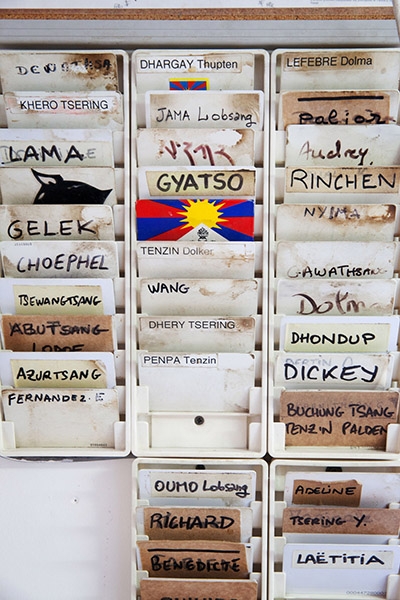 KHERO TSERING
LAMA
GELEK
CHOEPHEL
TSEWANGTSANG
ABUTSANG
AZURTSANG
FERNANDEZ.
DHARGAY Thupten
JAMA Lobsang
GYATSO
TENZIN Dolker
WANG
DHERY TSERING
PENPA Tenzin
LEFEBRE Dolma
Paljor
Audrey.
RINCHEN
NYIMA
DHONDUP
DICKEY
BUCHUNG TSANG
TENZIN PALDEN
OUMO Lobsang
RICHARD
BENEDICTE
ADELINE
TSERING Y.
LAËTITIA